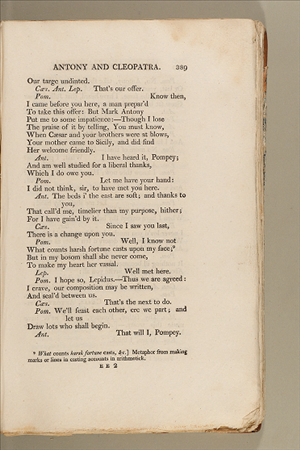 ANTONY AND CLEOPATRA. 389
Our targe undinted.
Cæs. Ant. Lep. That's our offer.
Pom. Know then,
I came before you here, a man prepar'd
To take this offer: But Mark Antony
Put me to some impatience:—Though I lose
The praise of it by telling, You must know,
When Cæsar and your brothers were at blows,
Your mother came to Sicily, and did find
Her welcome friendly.
Ant. I have heard it, Pompey;
And am well studied for a liberal thanks,
Which I do owe you.
Pom. Let me have your hand:
I did not think, sir, to have met you here.
Ant. The beds i' the east are soft; and thanks to
you,
That call'd me, timelier than my purpose, hither;
For I have gain'd by it.
Cæs. Since I saw you last,
There is a change upon you.
Pom. Well, I know not
What counts harsh fortune casts upon my face;*
But in my bosom shall she never come,
To make my heart her vassal.
Lep. Well met here.
Pom. I hope so, Lepidus.—Thus we are agreed:
I crave, our composition may be written,
And seal'd between us.
Cæs. That's the next to do.
Pom. We'll feast each other, ere we part; and
let us
Draw lots who shall begin.
Ant. That will I, Pompey.
* What counts harsh fortune casts, &c.] Metaphor from making
marks or lines in casting accounts in arithmetick.
E E 2